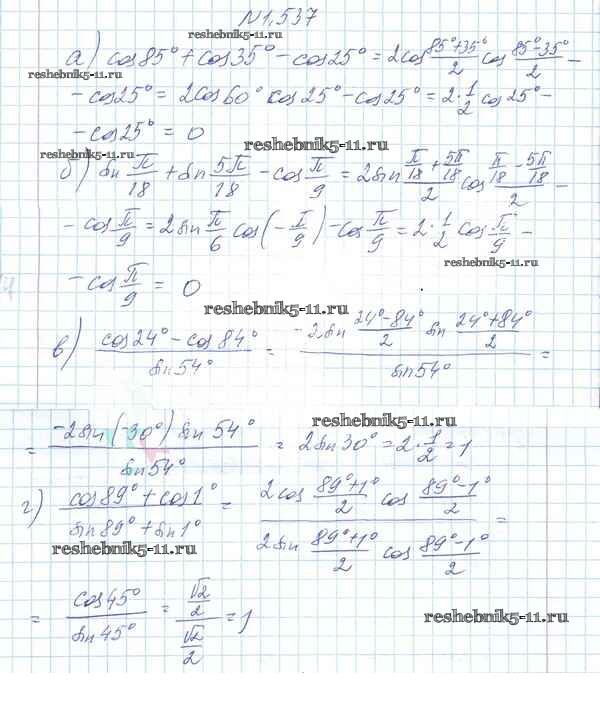 №1.537
reshebnik5-11.ru
а) cos85° + cos35° - cos25° = 2cos (85°+35°)/2 cos (85°-35°)/2 -
reshebnik5-11.ru
- cos25° = 2cos60° cos25° - cos25° = 2·1/2 cos25° -
- cos25° = 0
reshebnik5-11.ru
reshebnik5-11.ru
б) sin π/18 + sin 5π/18 - cos π/9 = 2sin (π/18 + 5π/18)/2 cos (π/18 - 5π/18)/2 -
- cos π/9 = 2sin π/6 cos(-π/9) - cos π/9 = 2·1/2 cos π/9 -
reshebnik5-11.ru
- cos π/9 = 0
reshebnik5-11.ru
в) (cos24° - cos84°)/sin54° = (-2sin (24°-84°)/2 sin (24°+84°)/2)/sin54° =
reshebnik5-11.ru
= (-2sin(-30°) sin54°)/sin54° = 2sin30° = 2·1/2 = 1
г) (cos89° + cos1°)/(sin89° + sin1°) = (2cos (89°+1°)/2 cos (89°-1°)/2)/(2sin (89°+1°)/2 cos (89°-1°)/2) =
reshebnik5-11.ru
= cos45°/sin45° = (√2/2)/(√2/2) = 1
reshebnik5-11.ru